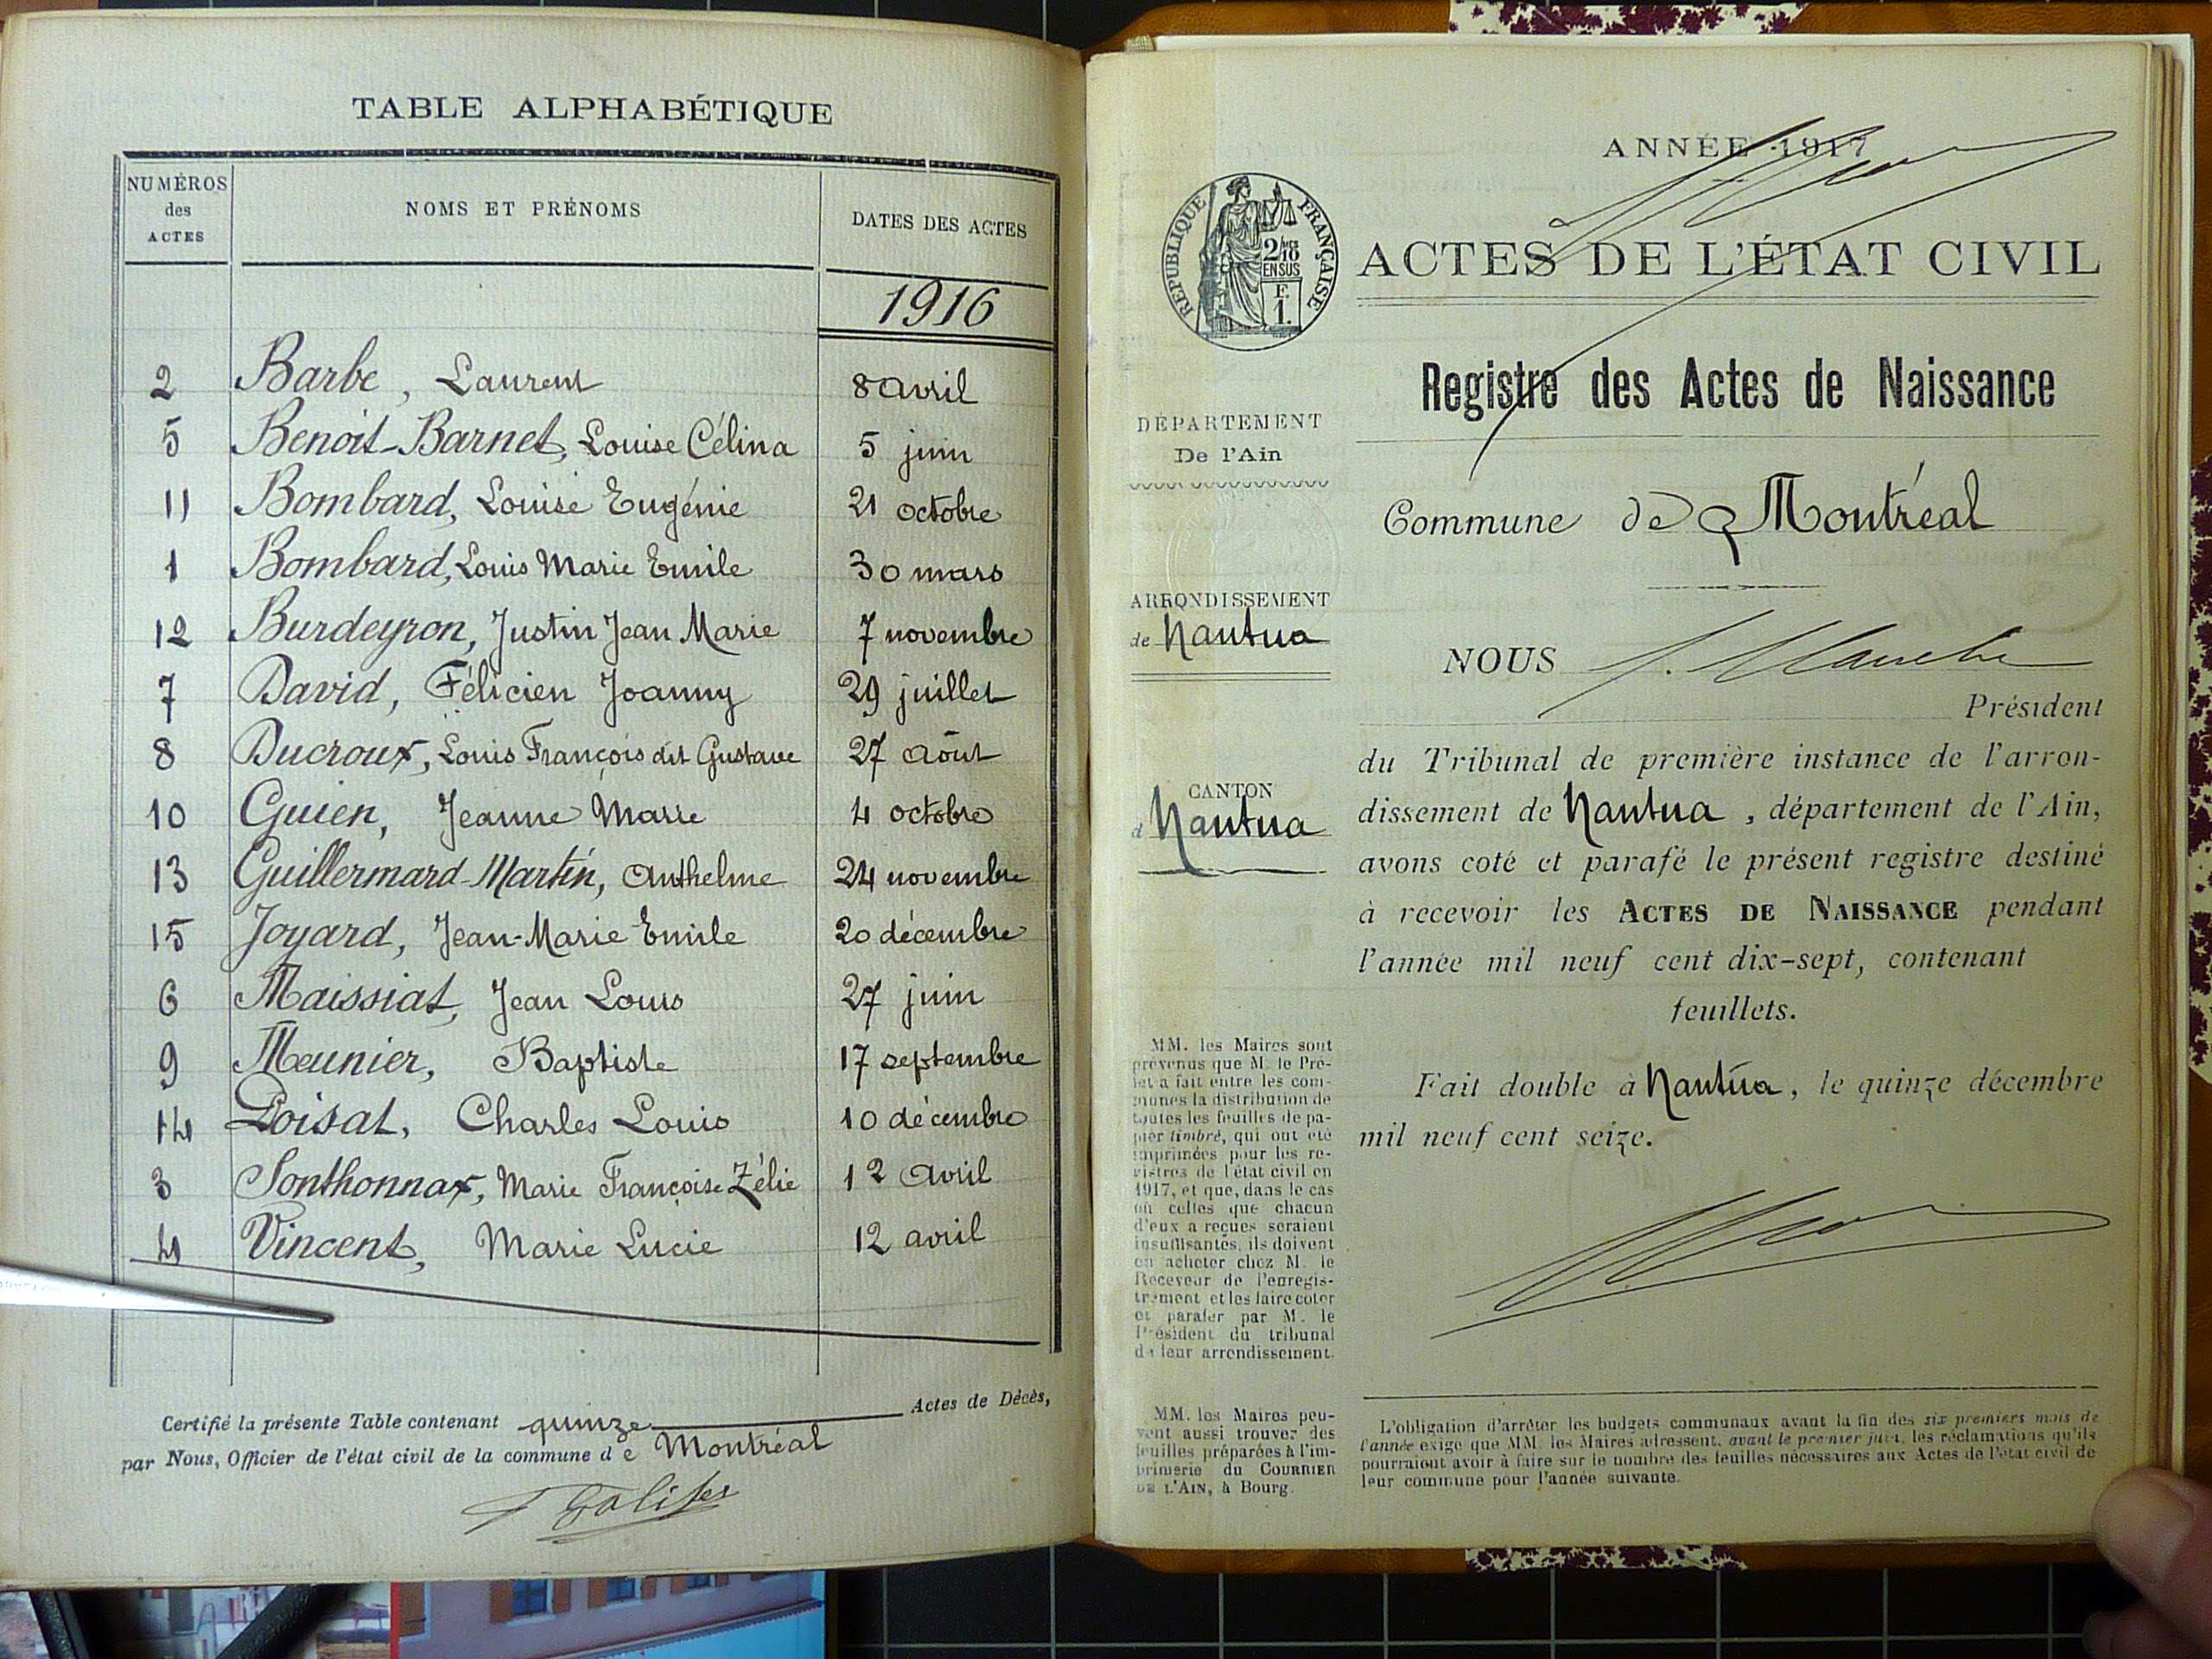 TABLE ALPHABÉTIQUE
NUMÉROS des ACTES
NOMS ET PRÉNOMS
DATES DES ACTES
1916
2 Barbe, Laurent 8 avril
5 Benoit-Barnet, Louise Célina 5 juin
11 Bombard, Louise Eugénie 21 octobre
1 Bombard, Louis Marie Emile 30 mars
12 Burdeyron, Justin Jean Marie 7 novembre
7 David, Félicien Joanny 29 juillet
8 Ducroux, Louis François dit Gustave 27 août
10 Guien, Jeanne Marie 4 octobre
13 Guillermard-Martin, Anthelme 24 novembre
15 Joyard, Jean-Marie Emile 20 décembre
6 Maissiat, Jean Louis 27 juin
9 Meunier, Baptiste 17 septembre
14 Poisat, Charles Louis 10 décembre
3 Sonthonnax, Marie Françoise Zélie 12 avril
4 Vincent, Marie Lucie 12 avril
Certifié la présente Table contenant quinze Actes de Décès,
par Nous, Officier de l'état civil de la commune de Montréal
ANNÉE 1917
RÉPUBLIQUE FRANÇAISE
2/10
EN SUS
F.
1.
ACTES DE L'ÉTAT CIVIL
Registre des Actes de Naissance
DÉPARTEMENT
De l'Ain
Commune de Montréal
ARRONDISSEMENT
de Nantua
NOUS
Président
du Tribunal de première instance de l'arron-
dissement de Nantua, département de l'Ain,
avons coté et parafé le présent registre destiné
à recevoir les ACTES DE NAISSANCE pendant
l'année mil neuf cent dix-sept, contenant
feuillets.
Fait double à Nantua, le quinze décembre
mil neuf cent seize.
CANTON
d Nantua
MM. les Maires sont
prévenus que M. le Pré-
fet a fait entre les com-
munes la distribution de
toutes les feuilles de pa-
pier timbré, qui ont été
imprimées pour les re-
gistres de l'état civil en
1917, et que, dans le cas
où celles que chacun
d'eux a reçues seraient
insuffisantes, ils doivent
en acheter chez M. le
Receveur de l'enregis-
trement et les faire coter
et parafer par M. le
Président du tribunal
de leur arrondissement.
MM. les Maires peu-
vent aussi trouver des
feuilles préparées à l'im-
primerie du COURRIER
DE L'AIN, à Bourg.
L'obligation d'arrêter les budgets communaux avant la fin des six premiers mois de
l'année exige que MM. les Maires adressent, avant le premier juin, les réclamations qu'ils
pourraient avoir à faire sur le nombre des feuilles nécessaires aux Actes de l'état civil de
leur commune pour l'année suivante.